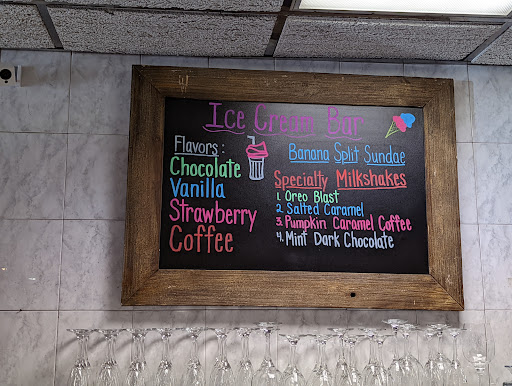 Ice Cream Bar
Flavors:
Chocolate
Vanilla
Strawberry
Coffee
Banana Split Sundae
Specialty Milkshakes
1. Oreo Blast
2. Salted Caramel
3. Pumpkin Caramel Coffee
4. Mint Dark Chocolate